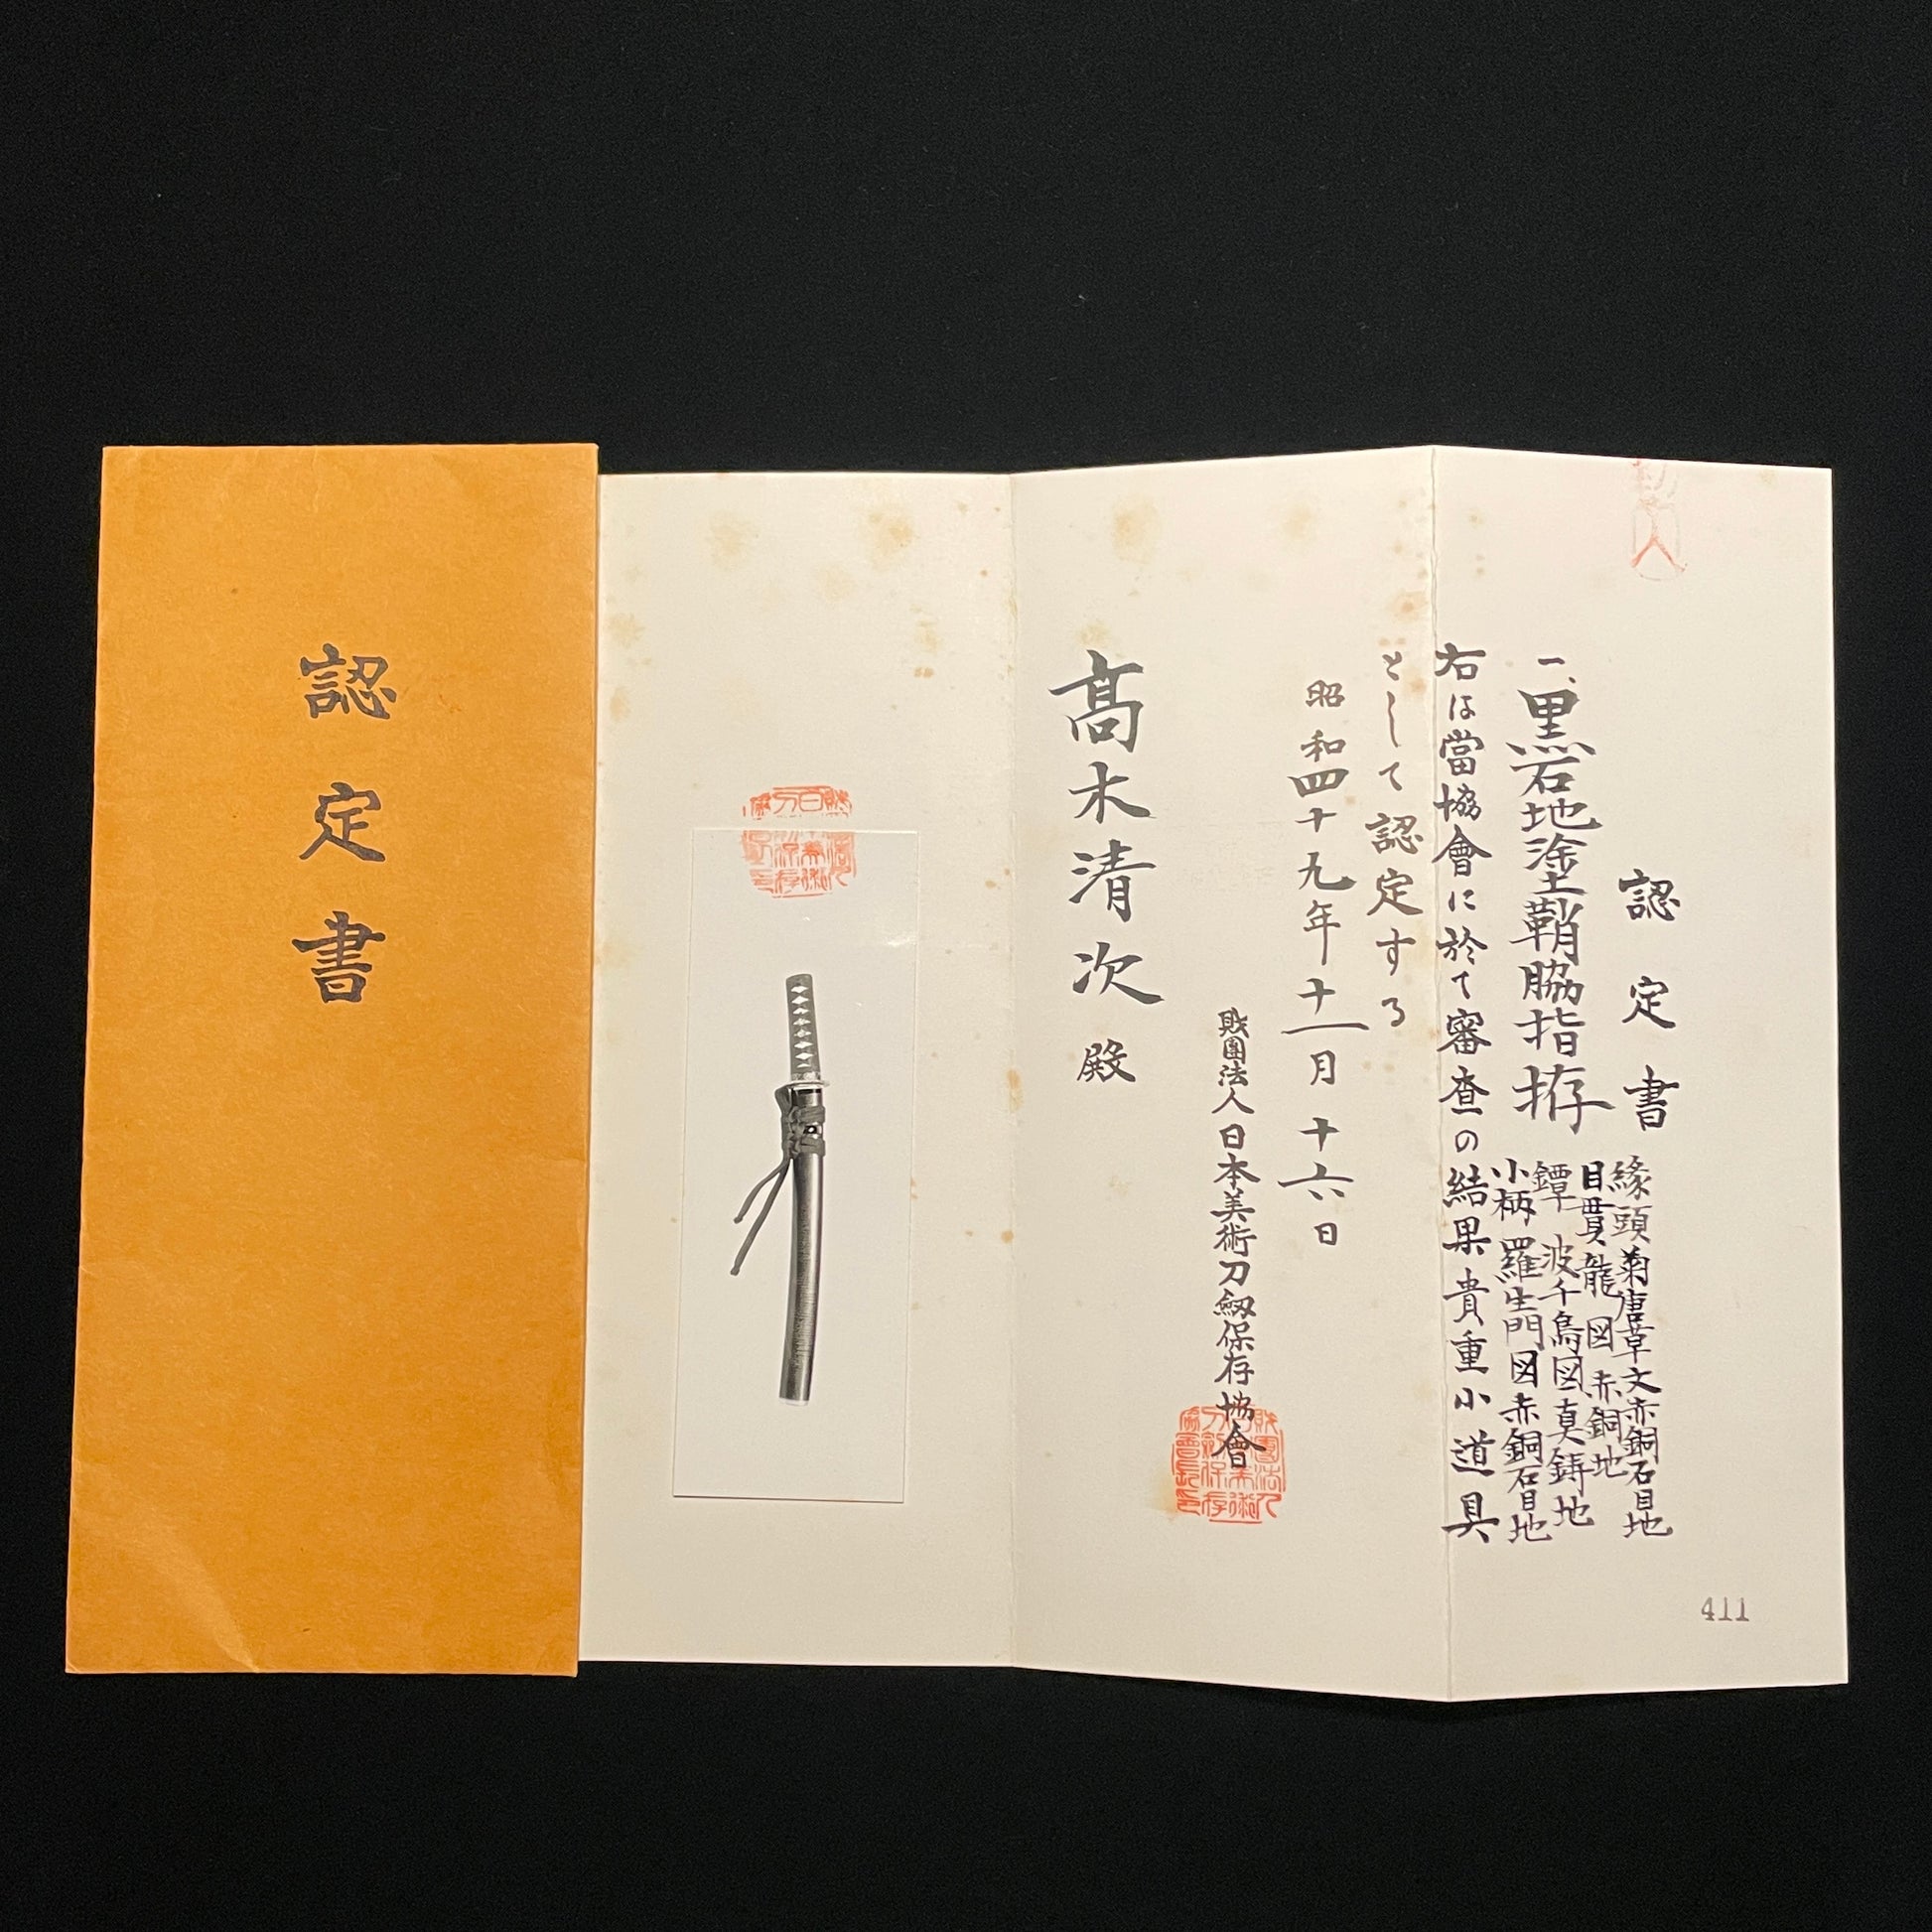 認定書
認定書
一、黒石地塗鞘脇指拵
縁頭 菊唐草文赤銅石目地
目貫 龍図 赤銅地
鐔 波千鳥図真鍮地
小柄 羅生門図赤銅石目地
右は當協會に於て審査の結果貴重小道具
として認定する
昭和四十九年十一月十六日
財團法人日本美術刀劔保存協會
髙木清次殿
411